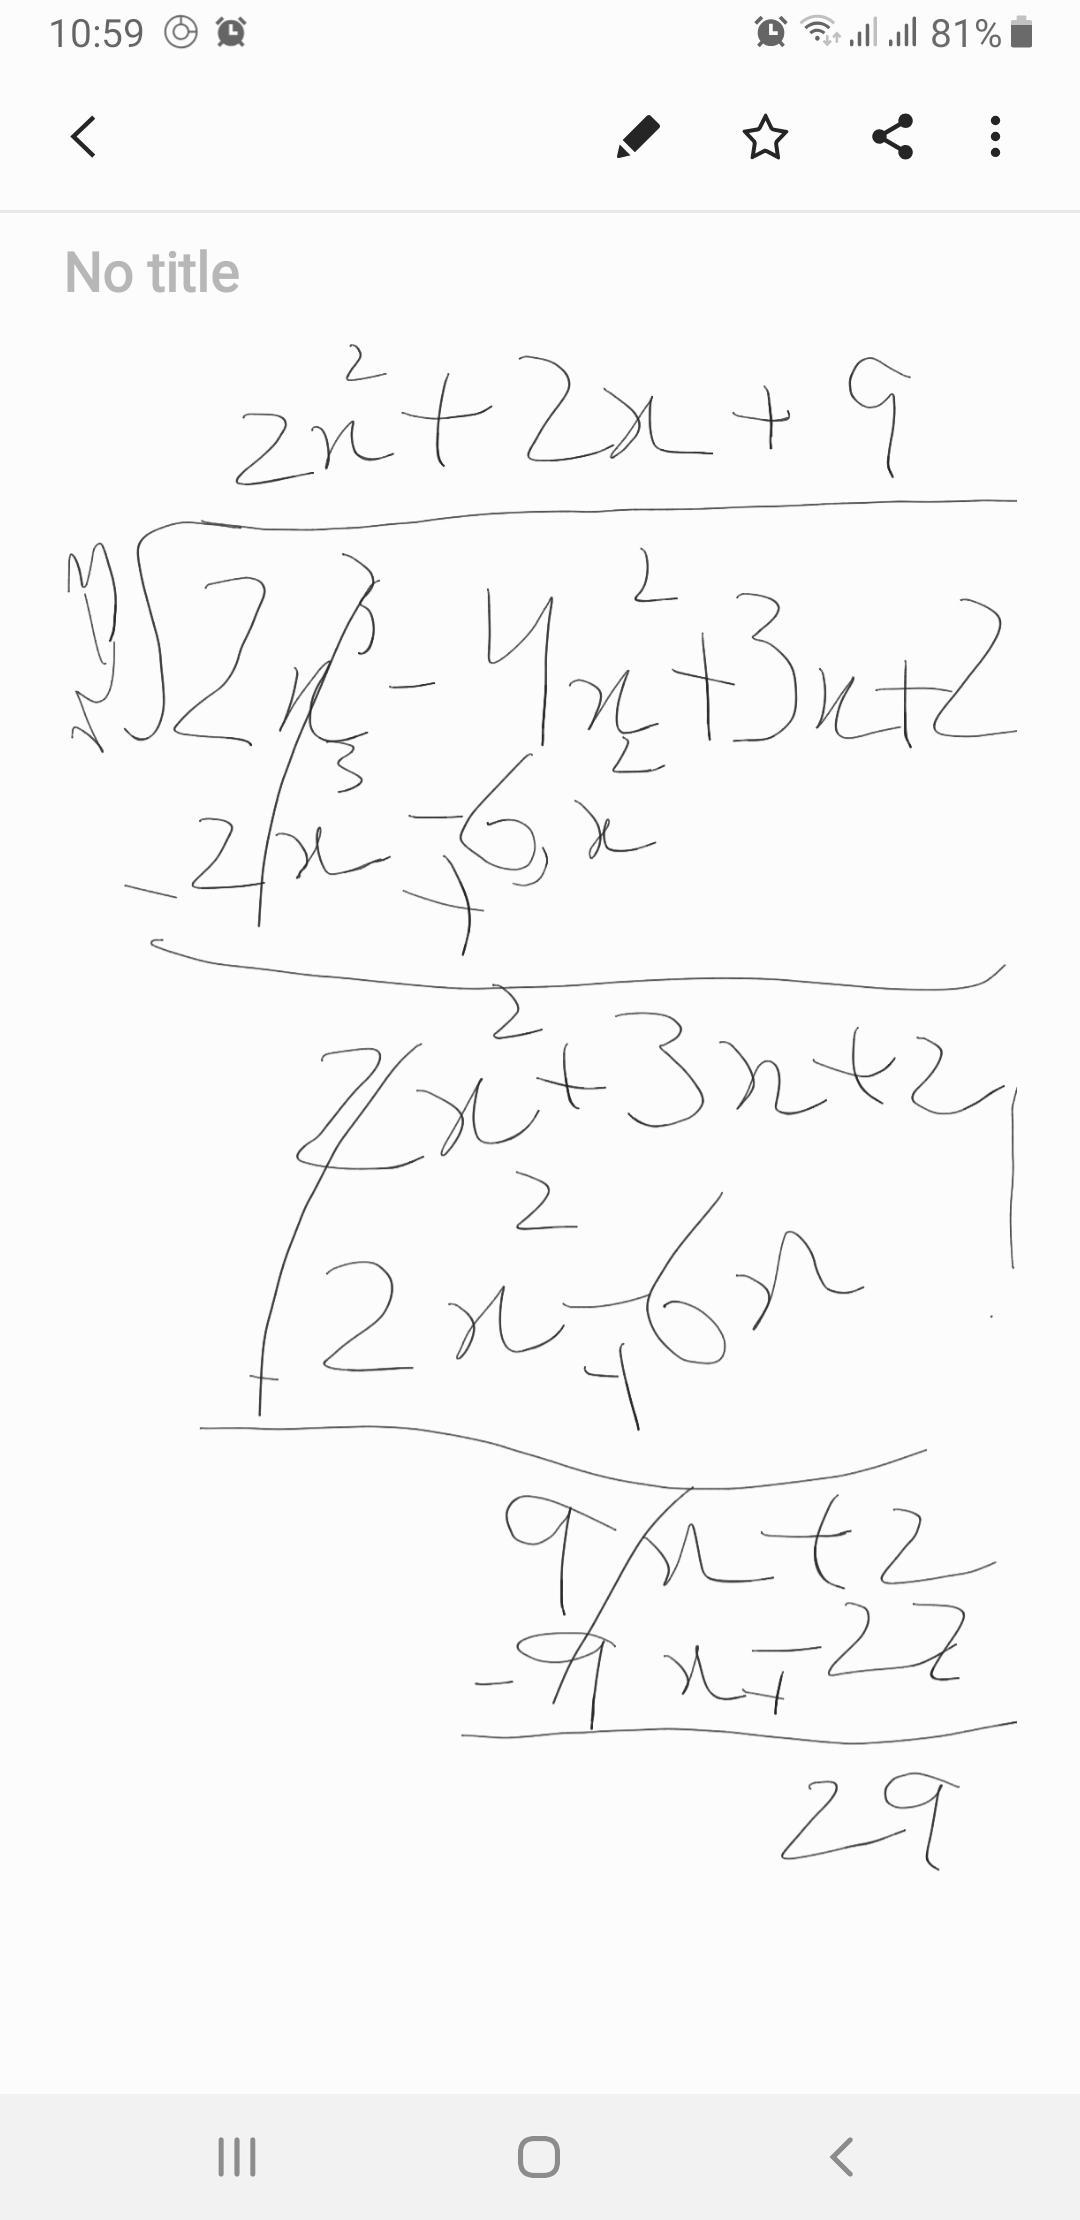 10:59 81%
No title
2x² + 2x + 9
2x³ - 4x² + 3x + 2
2x³ - 6x²
- +
2x² + 3x + 2
2x² - 6x
- +
9x + 2
- 9x - 27
+
29